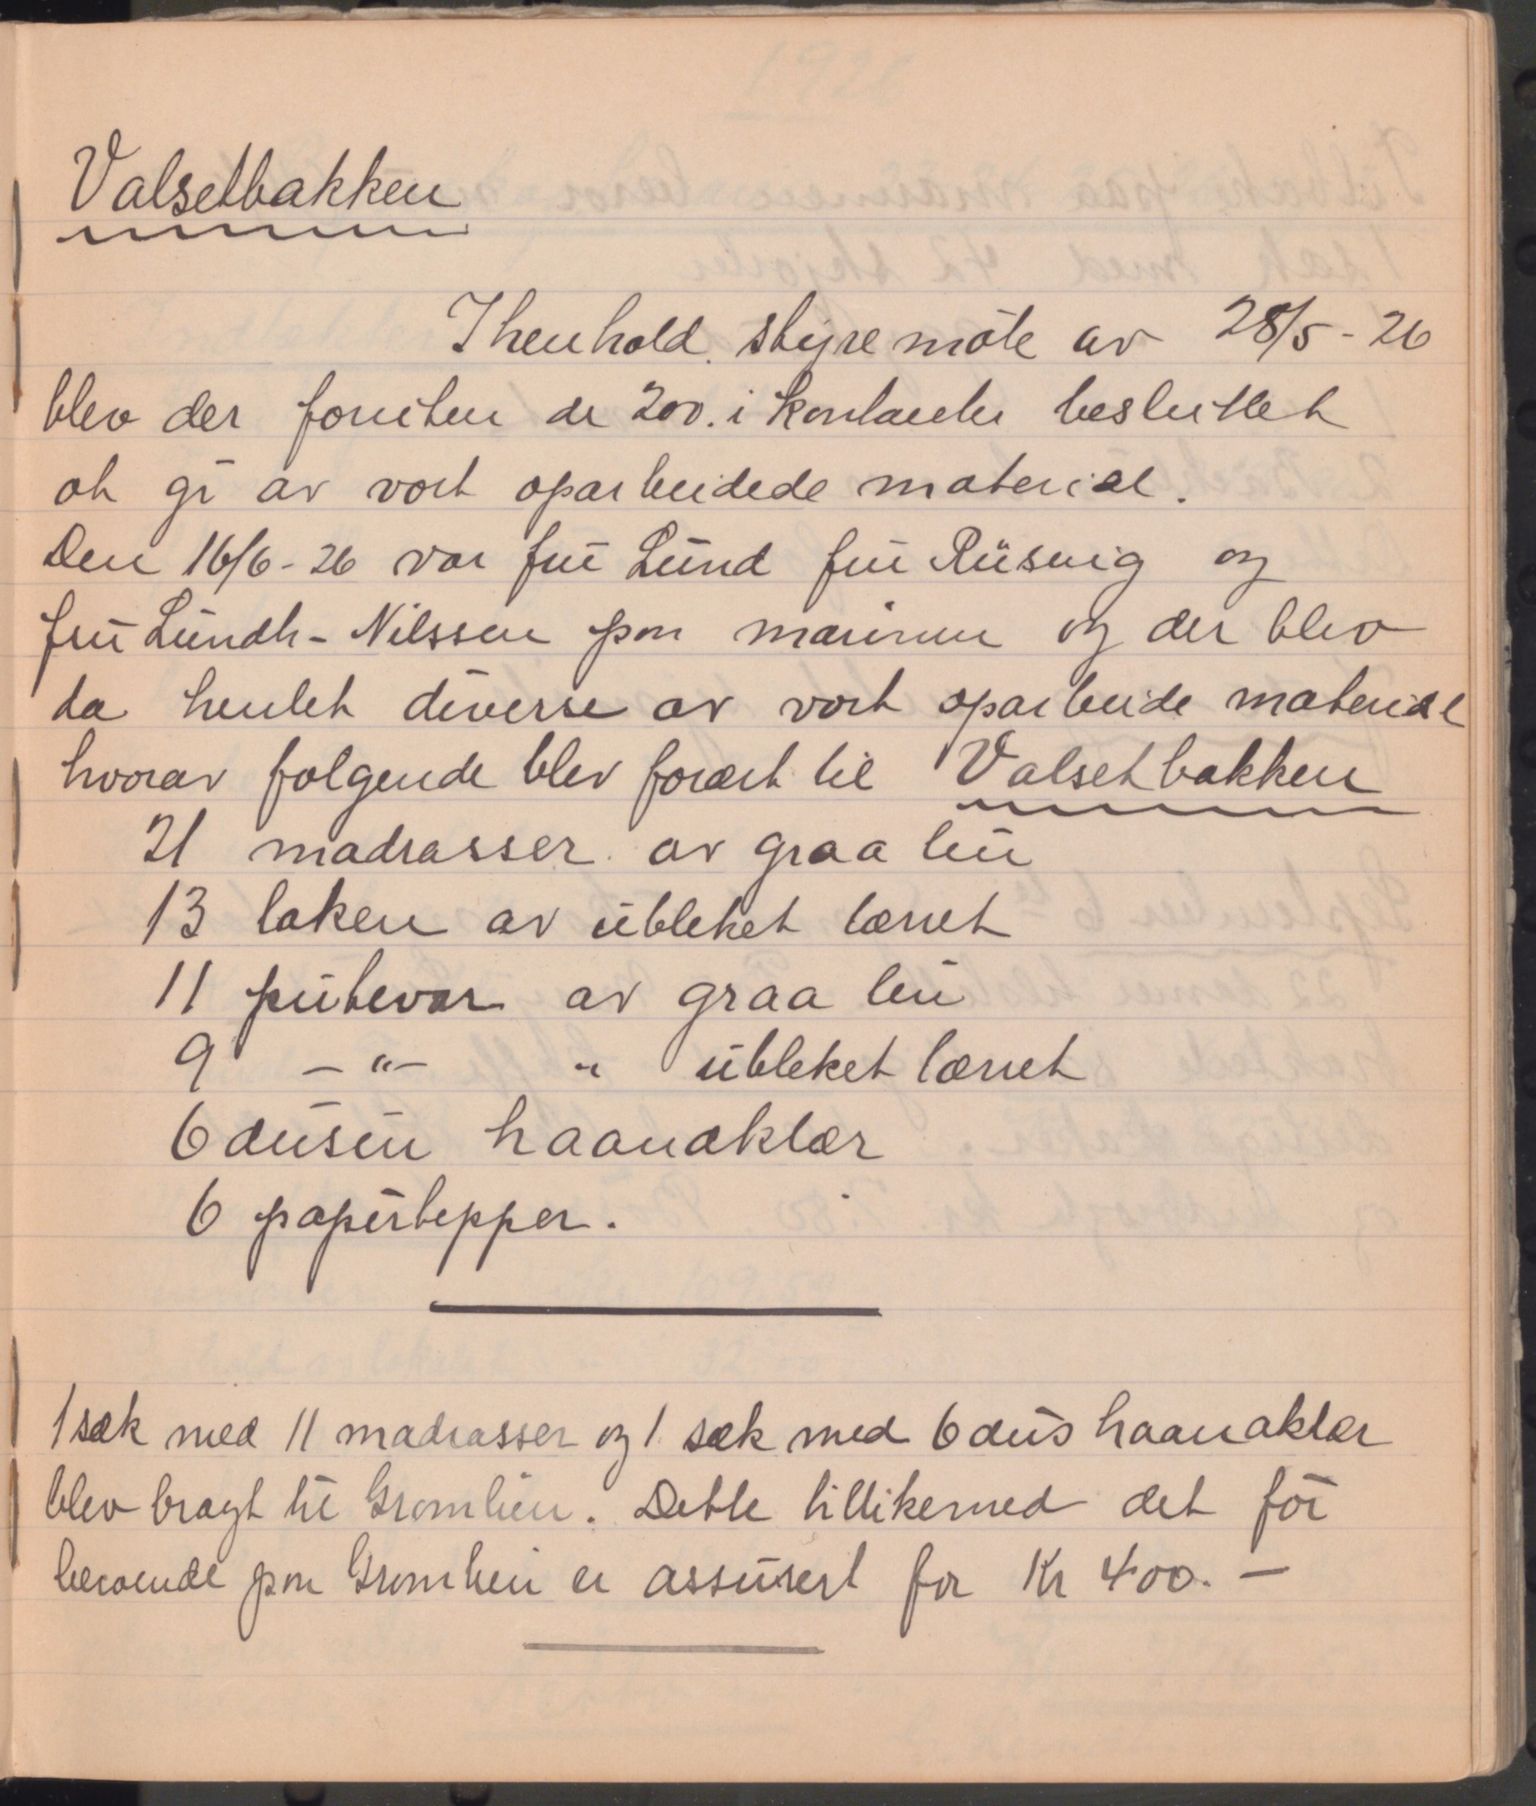 Valsetbakken
I henhold. styremöte av 28/5 - 26
blev der foruten de 200. i kontanter besluttet
at gi av vort oparbeidede material.
Den 16/6 - 26 var fru Lund fru Rüsnig og
fru Lundh - Nilssen paa marinen og der blev
da hentet diverse av vort oparbeide material
hvorav folgende blev forært til Valsetbakken
21 madrasser av graa lin
13 laken av ubleket lærret
11 putevar av graa lin
9 - " - " ubleket lærret
6 dusin haandklær
6 papirtepper.
1 sæk med 11 madrasser og 1 sæk med 6 dus haandklær
blev bragt til Gromlien. Dette tillikemed det för
beroende paa Gromlien er assurert for Kr 400. -